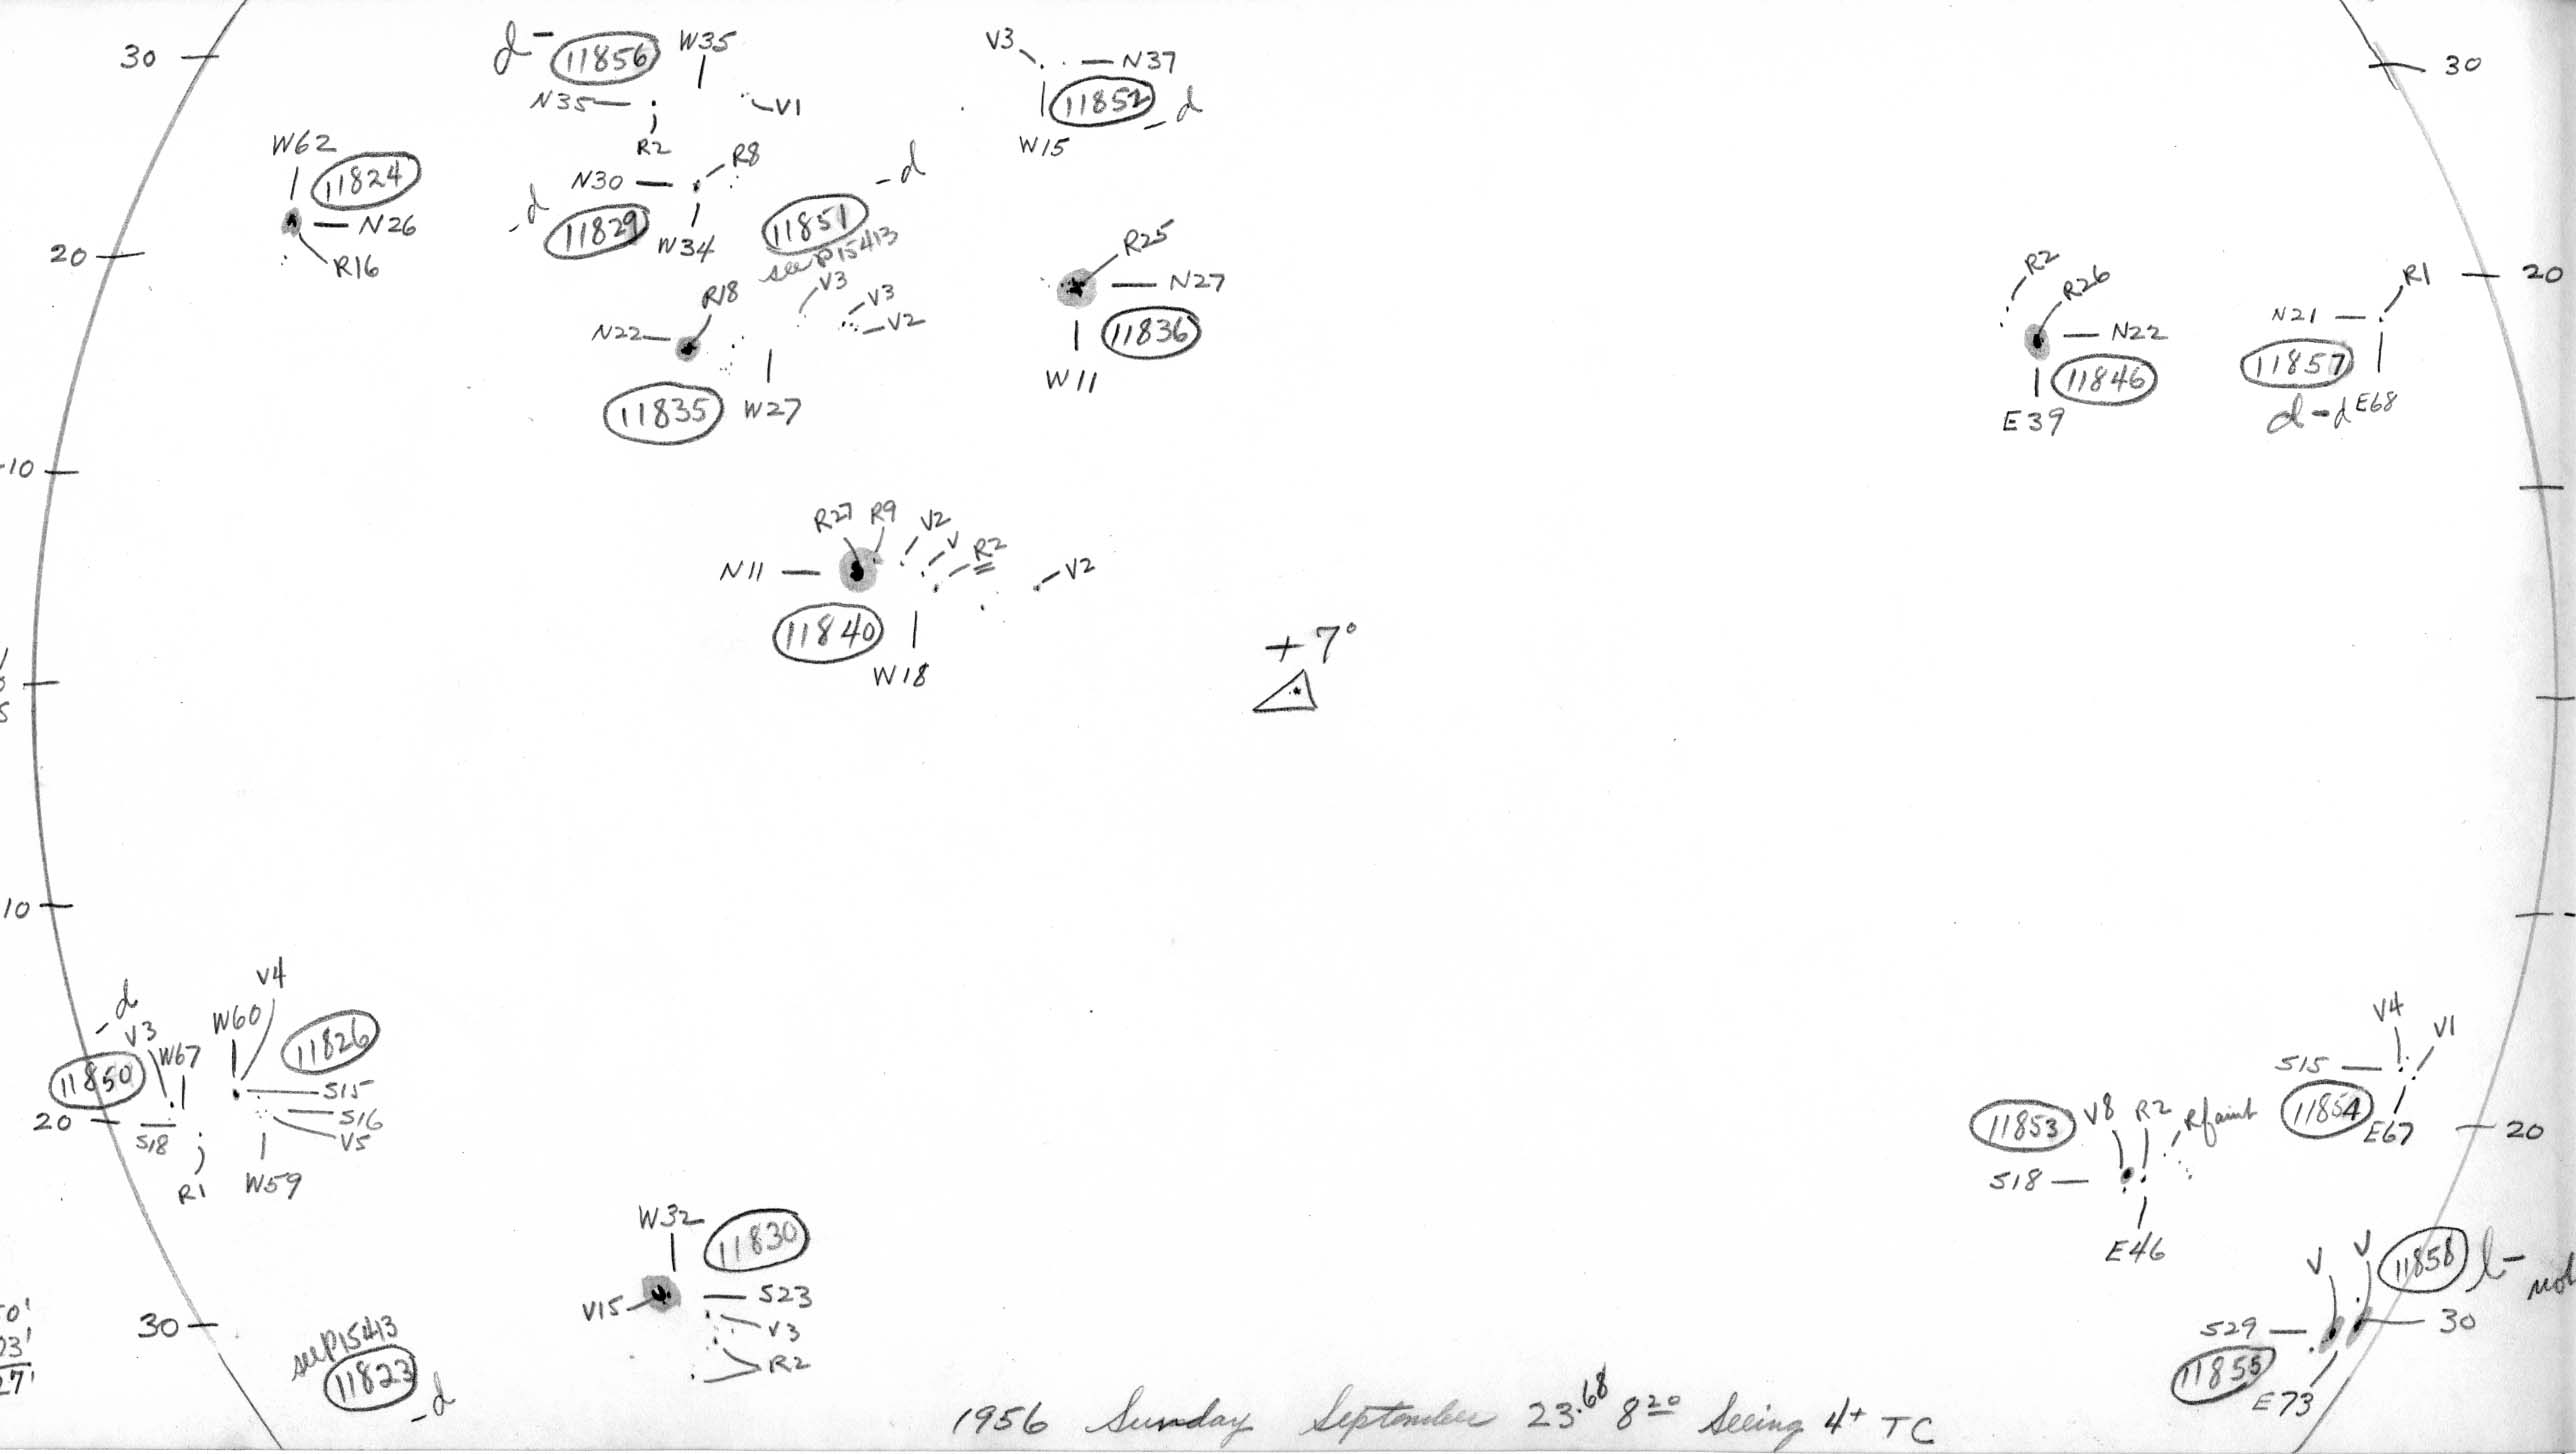 30
d - 11856 W35
N35
V1
R2
V3
N37
11852 - d
W15
30
W62
11824
N26
R16
20
R8
N30
- d 11829 W34
11851 - d
see P15413
V3
V3
V2
R18
N22
11835 W27
R25
N27
11836
W11
R2
R26
N22
11846
E39
R1
N21
11857
d - d E68
20
10
R27 R9 V2 V R2
V2
N11
11840
W18
+7°
10
- d
V3 W67
11850
20
S18
R1
V4
W60
11826
S15
S16
V5
W59
V4
V1
S15
11854
E67
20
11853 V8 R2 R faint
S18
E46
W32
11830
V15
S23
V3
R2
30
see P15413
11823 - d
V V 11858
S29
30
11855
E73
1956 Sunday September 23.68 8 20 Seeing 4+ TC